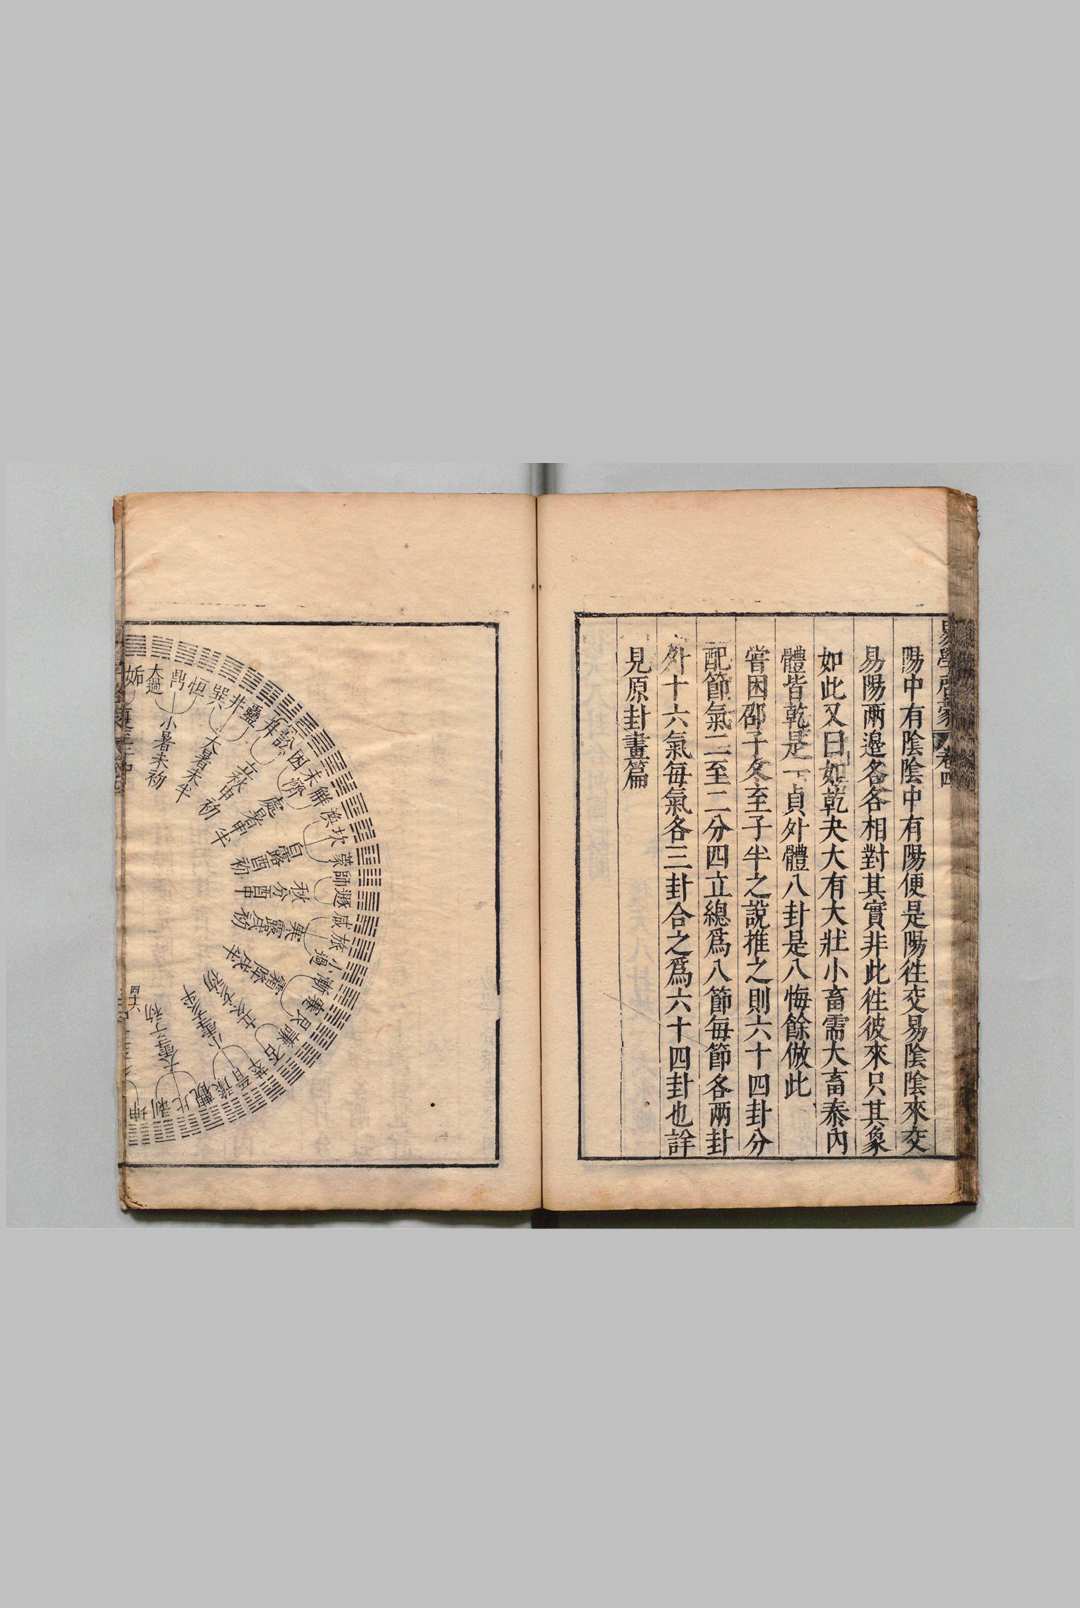 陽中有陰陰中有陽便是陽徃交易陰陰來交
易陽兩邉各各相對其實非此徃彼來只其象
如此又曰如乾夬大有大壯小畜需大畜泰內
體皆乾是一貞外體八卦是八悔餘倣此
嘗因邵子冬至子半之說推之則六十四卦分
配節氣二至二分四立總爲八節每節各兩卦
外十六氣每氣各三卦合之爲六十四卦也詳
見原卦畫篇
姤
大過
鼎
恒
巽
井
蠱
升
訟
困
未濟
解
渙
坎
蒙
師
遯
咸
旅
小過
漸
蹇
艮
謙
否
萃
晉
豫
觀
比
剥
坤
小暑未初
大暑未半
立秋申初
處暑申半
白露酉初
秋分酉中
寒露戌初
霜降戌半
立冬亥初
小雪亥半
大雪子初